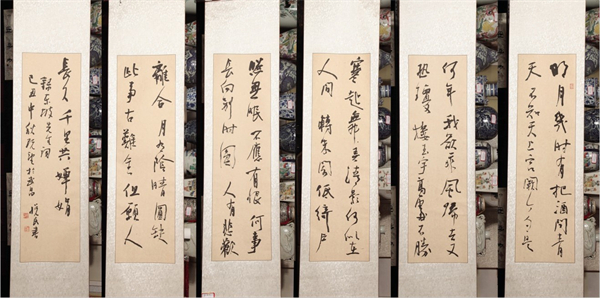 明月幾時有把酒問青
天不知天上宮闕今夕是
何年我欲乘風歸去又
恐瓊樓玉宇高處不勝
寒起舞弄清影何似在
人間轉朱閣低綺戶
照無眠不應有恨何事
長向别時圓人有悲歡
離合月有陰晴圓缺
此事古難全但願人
長久千里共嬋娟
錄東坡先生詞
己丑中秋 於武昌